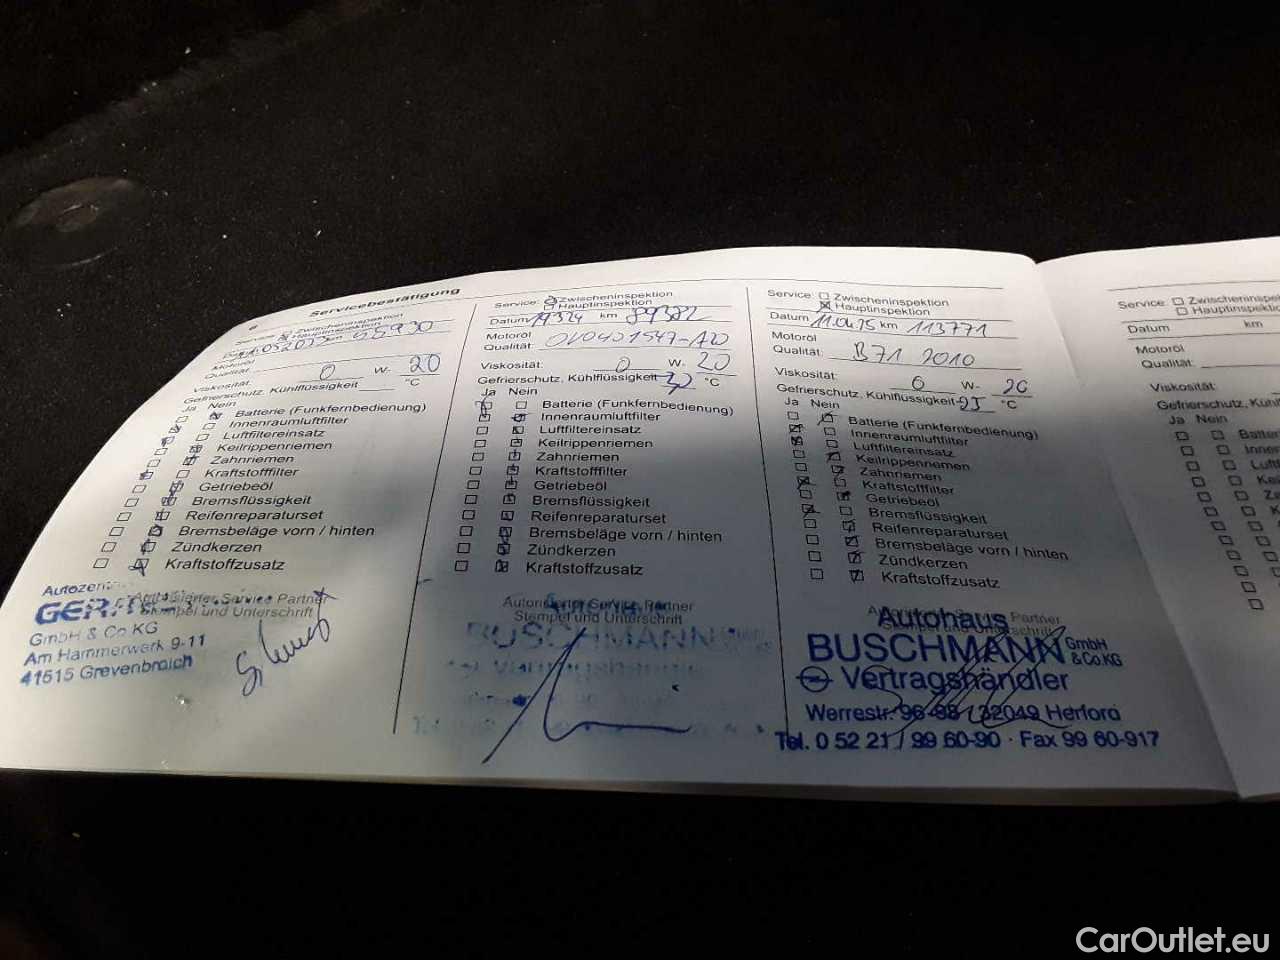 6
Servicebestätigung
Service: Zwischeninspektion
Hauptinspektion
km 55930
Motoröl
Qualität:
Viskosität: 0 W- 20
Gefrierschutz, Kühlflüssigkeit °C
Ja Nein
Batterie (Funkfernbedienung)
Innenraumluftfilter
Luftfiltereinsatz
Keilrippenriemen
Zahnriemen
Kraftstofffilter
Getriebeöl
Bremsflüssigkeit
Reifenreparaturset
Bremsbeläge vorn / hinten
Zündkerzen
Kraftstoffzusatz
Autorisierter Service Partner
Stempel und Unterschrift
GmbH & Co KG
Am Hammerwerk 9-11
41515 Grevenbroich
Service: Zwischeninspektion
Hauptinspektion
Datum km 89382
Motoröl
Qualität:
Viskosität: 0 W- 20
Gefrierschutz, Kühlflüssigkeit °C
Ja Nein
Batterie (Funkfernbedienung)
Innenraumluftfilter
Luftfiltereinsatz
Keilrippenriemen
Zahnriemen
Kraftstofffilter
Getriebeöl
Bremsflüssigkeit
Reifenreparaturset
Bremsbeläge vorn / hinten
Zündkerzen
Kraftstoffzusatz
Autorisierter Service Partner
Stempel und Unterschrift
BUSCHMANN
Service: Zwischeninspektion
Hauptinspektion
Datum km 113771
Motoröl
Qualität: B71 2010
Viskosität: 0 W- 20
Gefrierschutz, Kühlflüssigkeit -25 °C
Ja Nein
Batterie (Funkfernbedienung)
Innenraumluftfilter
Luftfiltereinsatz
Keilrippenriemen
Zahnriemen
Kraftstofffilter
Getriebeöl
Bremsflüssigkeit
Reifenreparaturset
Bremsbeläge vorn / hinten
Zündkerzen
Kraftstoffzusatz
Autorisierter Service Partner
Stempel und Unterschrift
Autohaus
BUSCHMANN GmbH & Co KG
Vertragshändler
Werrestr. 96-98 · 32049 Herford
Tel. 0 52 21 / 99 60-90 · Fax 99 60-917
Service: Zwischeninspe
Hauptinspe
Datum km
Motoröl
Qualität:
Viskosität:
Gefrierschutz, Kühl
Ja Nein
CarOutlet.eu